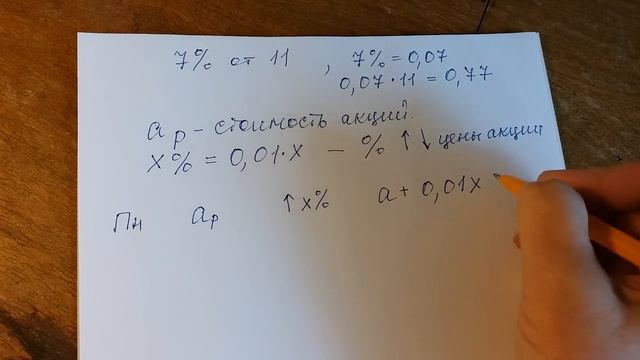 7% от 11 , 7% = 0,07
0,07·11 = 0,77
a р – стоимость акций.
x% = 0,01·x – % ↑↓ цены акции
Пн aр ↑x% a + 0,01x